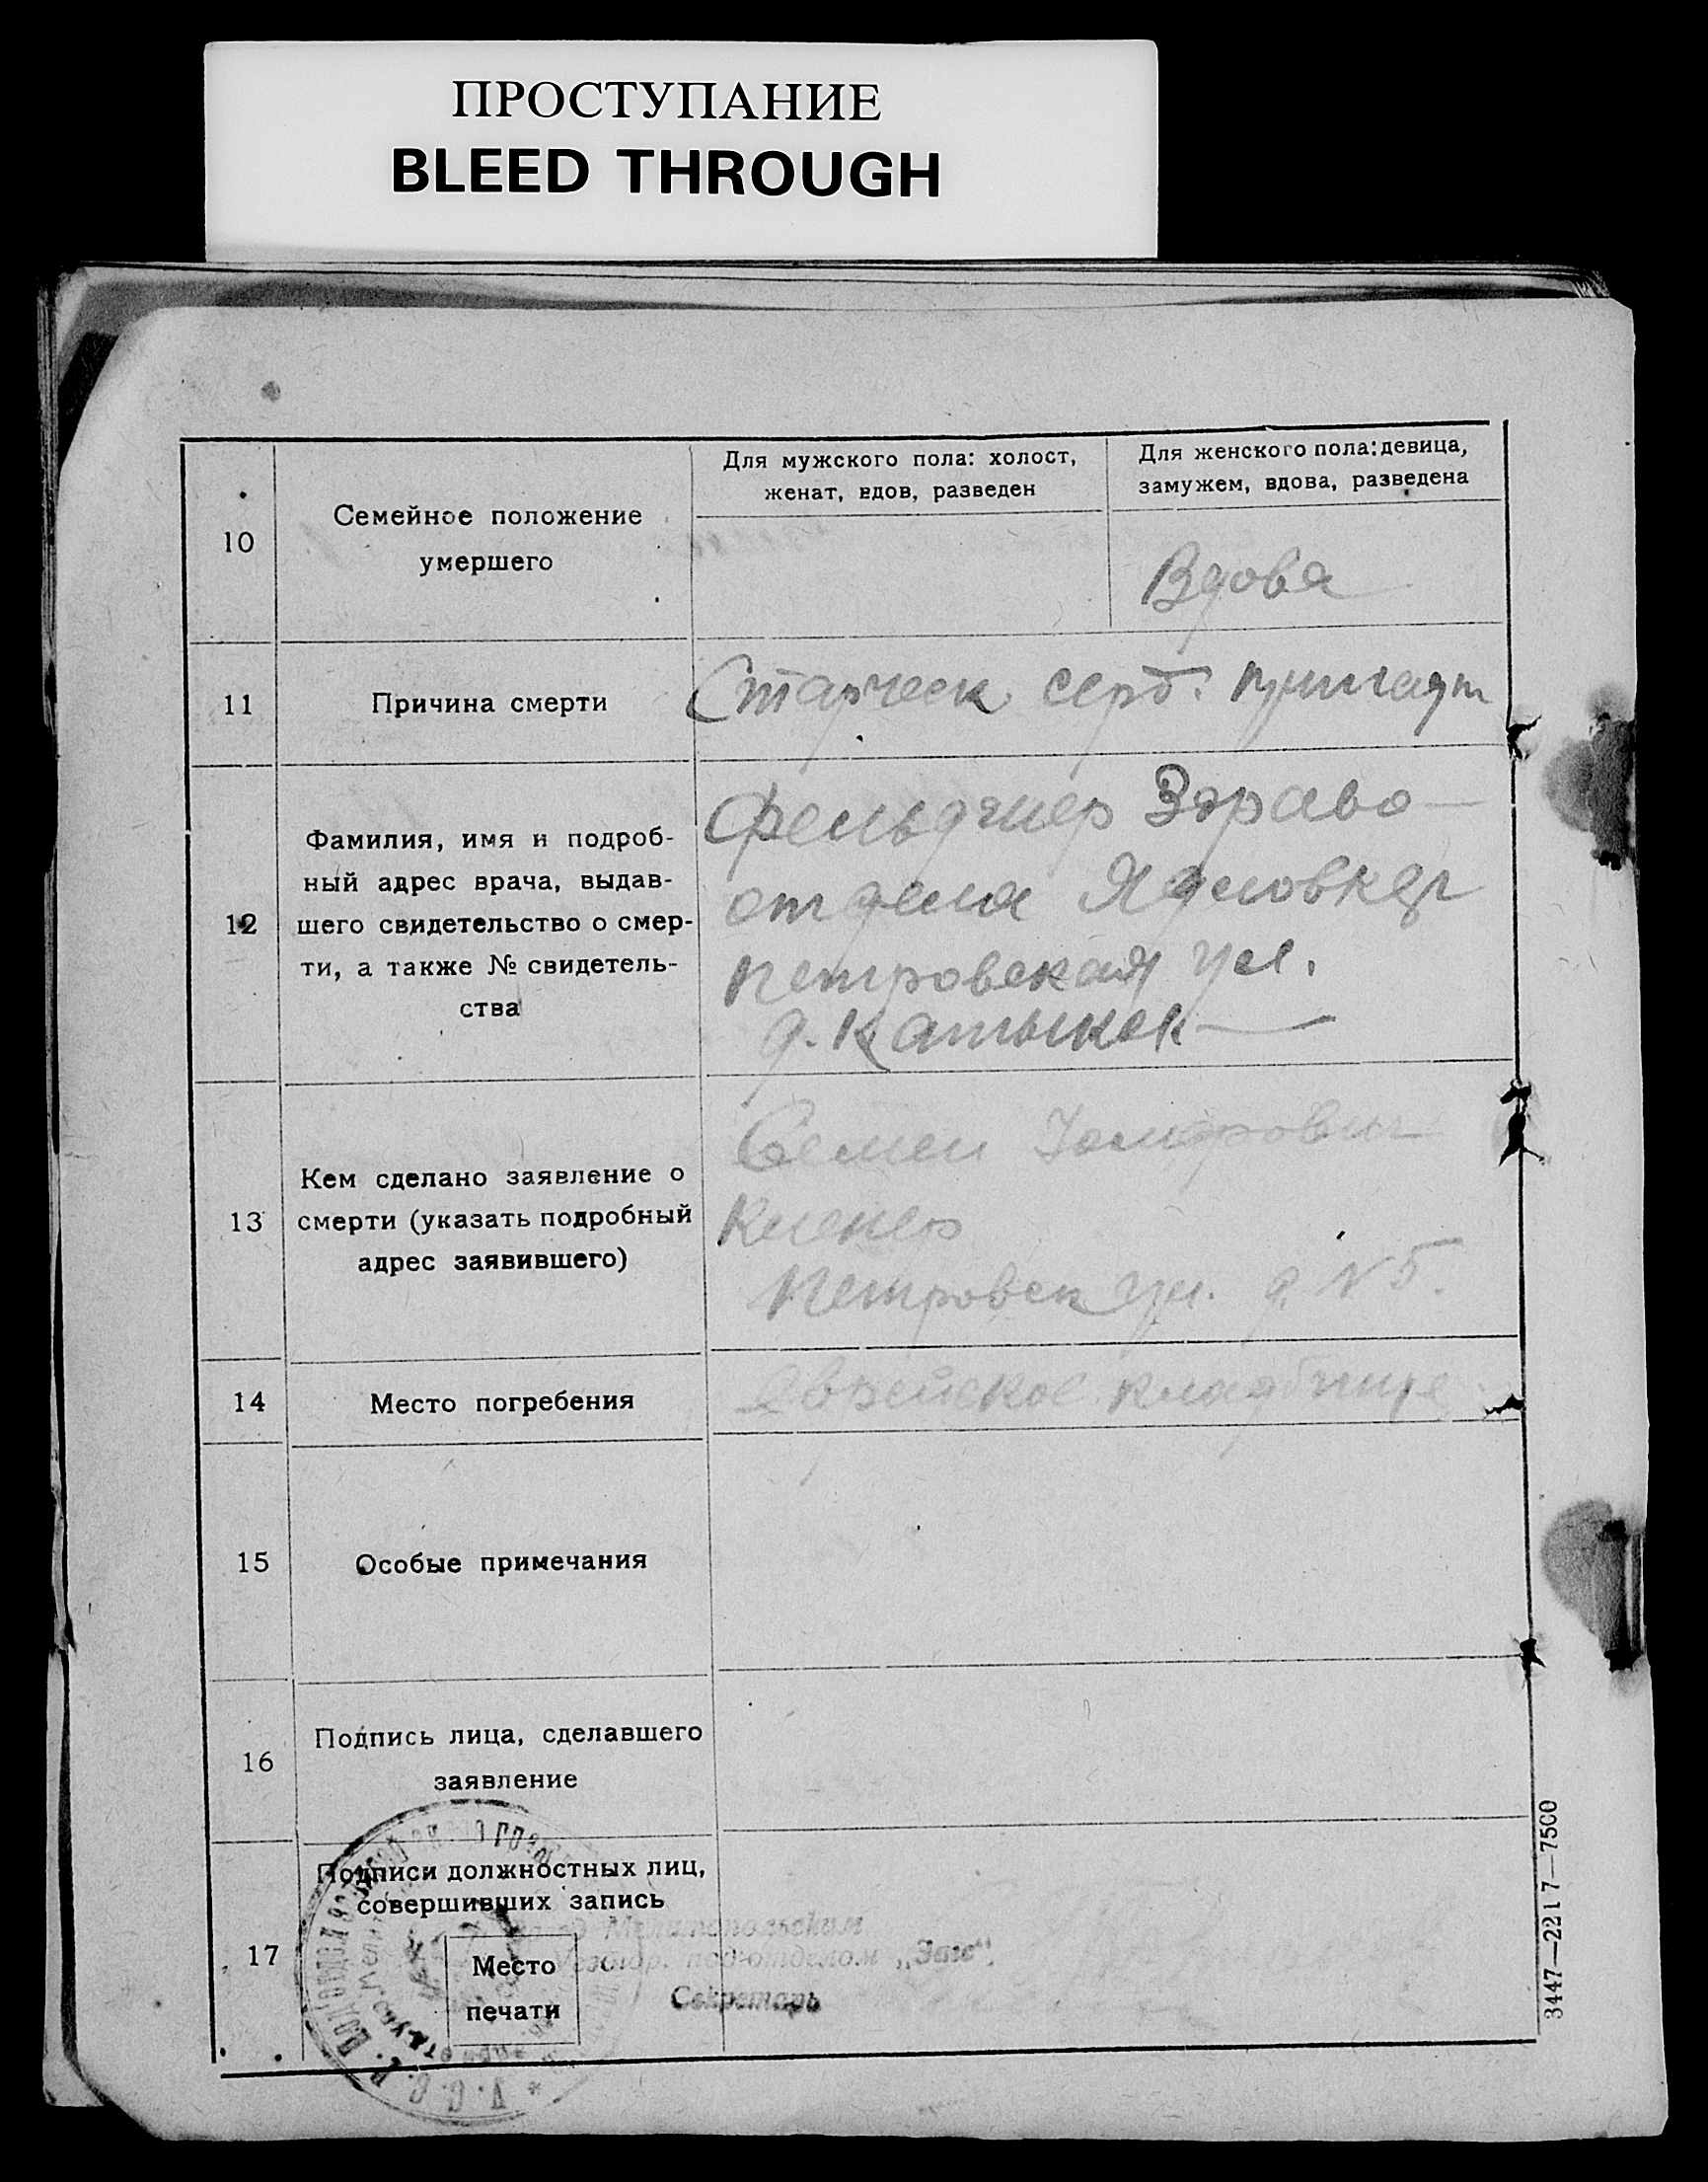 ПРОСТУПАНИЕ
BLEED THROUGH
Для мужского пола: холост,
женат, вдов, разведен
Для женского пола: девица,
замужем, вдова, разведена
10
Семейное положение
умершего
Вдова
11
Причина смерти
Старческ
12
Фамилия, имя и подроб-
ный адрес врача, выдав-
шего свидетельство о смер-
ти, а также № свидетель-
ства
Фельдшер Здраво-
отдела
Петровская ул.
д.
13
Кем сделано заявление о
смерти (указать подробный
адрес заявившего)
Семен
Петровск ул. д. № 5.
14
Место погребения
Еврейское кладбище
15
Особые примечания
16
Подпись лица, сделавшего
заявление
17
Подписи должностных лиц,
совершивших запись
Место
печати
Мелитопольским
под-отделом „Загс“.
Секретарь
У.С.С.Р.
3447—2217—7500